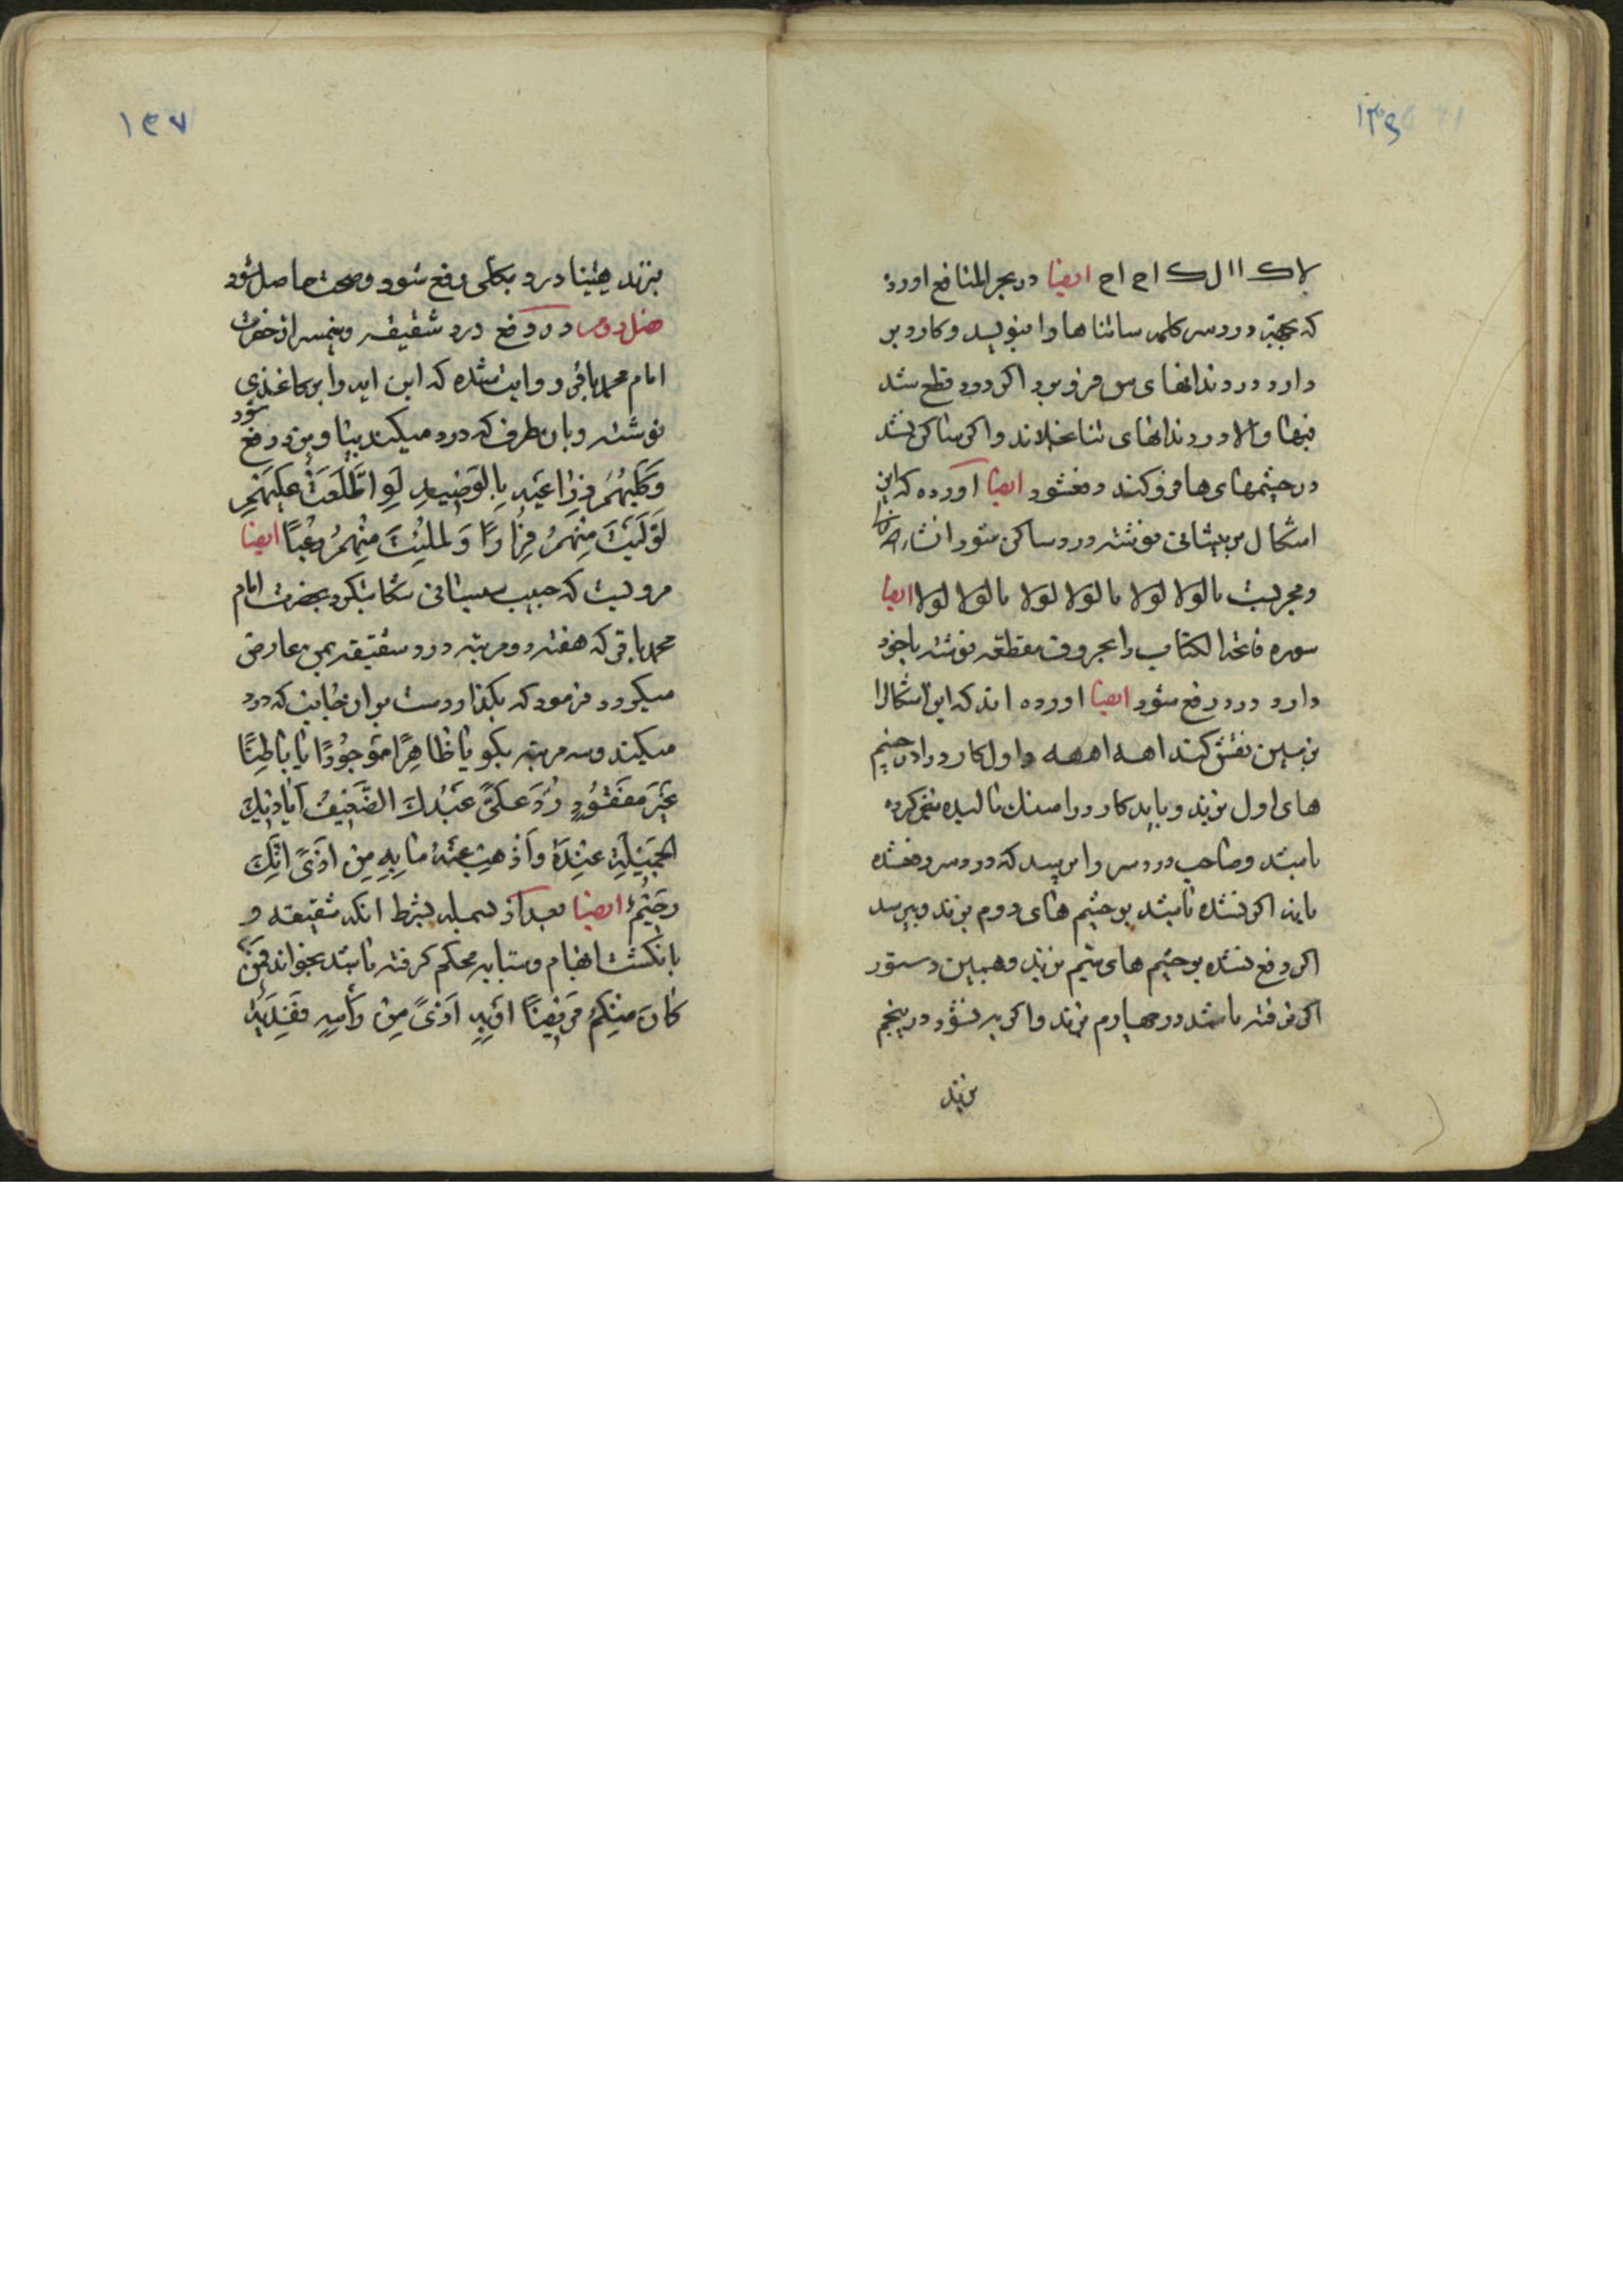 ١٣٦
لاک ١١ ل ک اح اح ايضا در بحر المنافع اورده
که بجهة درد سر کلمه ساتناها را بنويسد و کارد بر
دارد در دندانهای س فرو برد اکر درد قطع شد
فبها والا در دندانهای تنا بخلاند و اکر ساکن نشد
در چشمهای ها فرو کند دفع شود ايضا آورده که اين
اشکال بر پيشانی نوشته درد ساکن شود انشاء الله
و مجربست مالولا لولا مالولا لولا مالولا لولا ايضا
سوره فاتحة الکتاب را بحروف مقطعه نوشته باخود
دارد درد رفع شود ايضا اورده اند که اين اشکالرا
بزمين نقش کند اهه اههه و اول کارد را در چشم
های اول بزند و بايد کارد را بسنک ماليده تيز کرده
باشد و صاحب درد سر را بپرسد که درد سر رفع شده
يا نه اکر نشده باشد بر چشم های دوم بزند و بپرسد
اکر رفع نشده بر چشم های سيم بزند و همين دستور
اکر نرفته باشد در چهارم بزند و اکر به نشود در پنجم
بزند
١٣٧
بزند يقينا درد بکلی رفع شود و صحت حاصل شود
فصل دوم در دفع درد شقيقه و نيمسر از حضرت
امام محمد باقر روايت شده که اين ايه را بر کاغذی
نوشته و بان طرف که درد ميکند بياويزد رفع شود
وَکَلْبُهُمْ بَاسِطٌ ذِرَاعَيْهِ بِالْوَصِيدِ لَوِ اطَّلَعْتَ عَلَيْهِمْ
لَوَلَّيْتَ مِنْهُمْ فِرَارًا وَلَمُلِئْتَ مِنْهُمْ رُعْبًا ايضا
مرويست که حبيب سيستانی شکايت کرد بحضرت امام
محمد باقر که هفته دو مرتبه درد شقيقه بمن عارض
ميکردد فرمود که بکذار دست بر ان جانب که درد
ميکند و سه مرتبه بکو يَا ظَاهِرًا مَوْجُودًا يَا بَاطِنًا
غَيْرَ مَفْقُودٍ رُدَّ عَلَى عَبْدِكَ الضَّعِيفِ أَيَادِيَكَ
الْجَمِيلَةَ عِنْدَهُ وَأَذْهِبْ عَنْهُ مَا بِهِ مِنْ أَذًى إِنَّكَ
رَحِيمٌ ايضا بعد از بسمله بشرط انکه شقيقه و
بانکشت ابهام و سبابه محکم کرفته باشد بخواند فَمَنْ
کَانَ مِنْکُمْ مَرِيضًا أَوْ بِهِ أَذًى مِنْ رَأْسِهِ فَفِدْيَةٌ